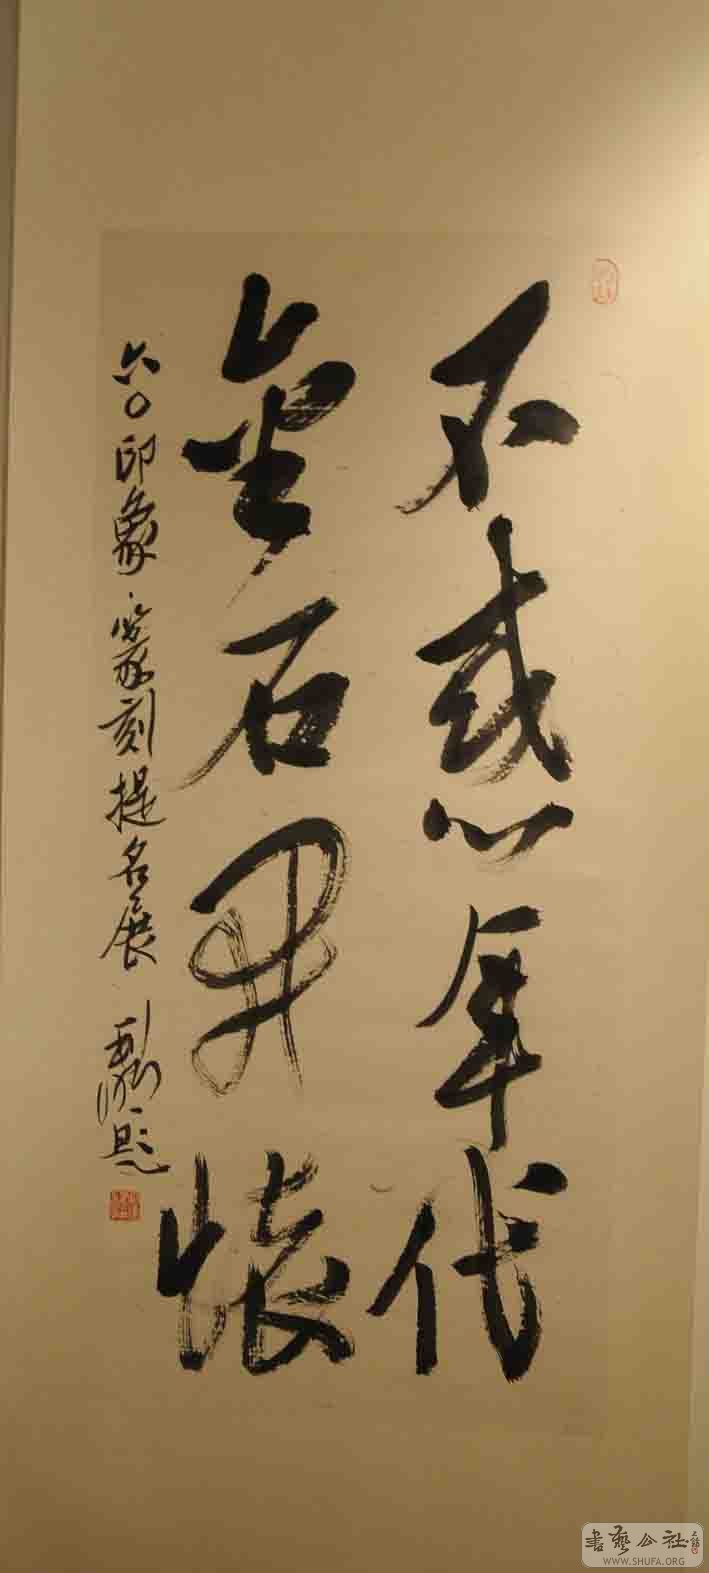 不惑年代
金石开怀
六〇印象·篆刻提名展
书艺公社
WWW.SHUFA.ORG